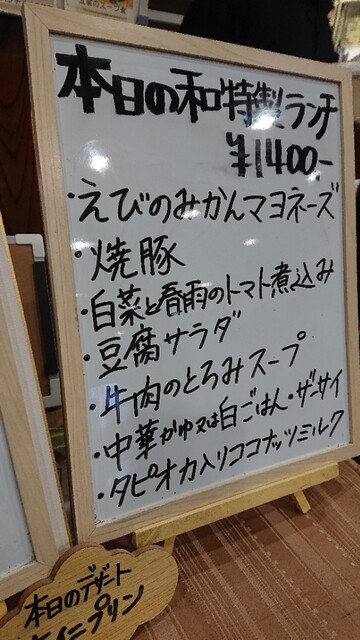 本日の和特製ランチ
¥1400-
・えびのみかんマヨネーズ
・焼豚
・白菜と春雨のトマト煮込み
・豆腐サラダ
・牛肉のとろみスープ
・中華がゆ又は白ごはん・ザーサイ
・タピオカ入りココナッツミルク
本日のデザート
プリン